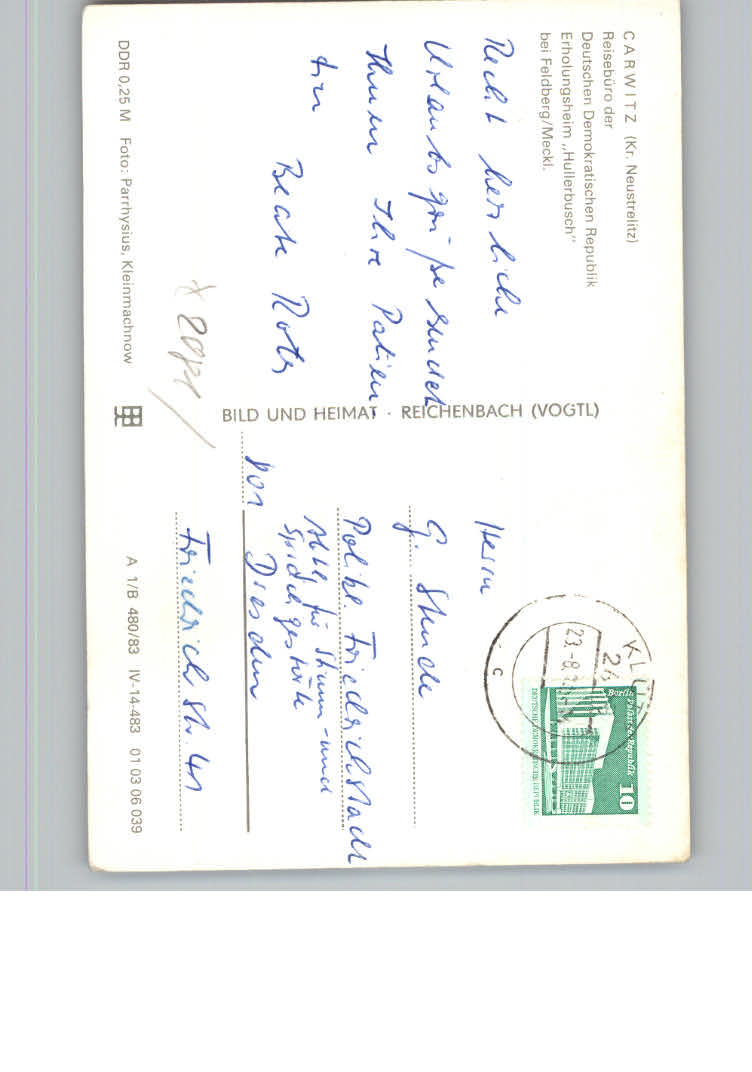 CARWITZ (Kr. Neustrelitz)
Reisebüro der
Deutschen Demokratischen Republik
Erholungsheim „Hullerbusch"
bei Feldberg/Meckl.
Recht herzliche
Urlaubsgrüße sendet
Ihnen Ihre Patien
tin
Beate
DDR 0,25 M Foto: Parrhysius, Kleinmachnow
BILD UND HEIMAT · REICHENBACH (VOGTL)
23.-8.
c
Berlin
Palast der Republik
10
DEUTSCHE DEMOKRATISCHE REPUBLIK
Herrn
G.
Polikl. Friedrichstadt
Abtlg für Stimm- und
Sprachgestörte
801 Dresden
Friedrichstr. 41
A 1/B 480/83 IV-14-483 01 03 06 039